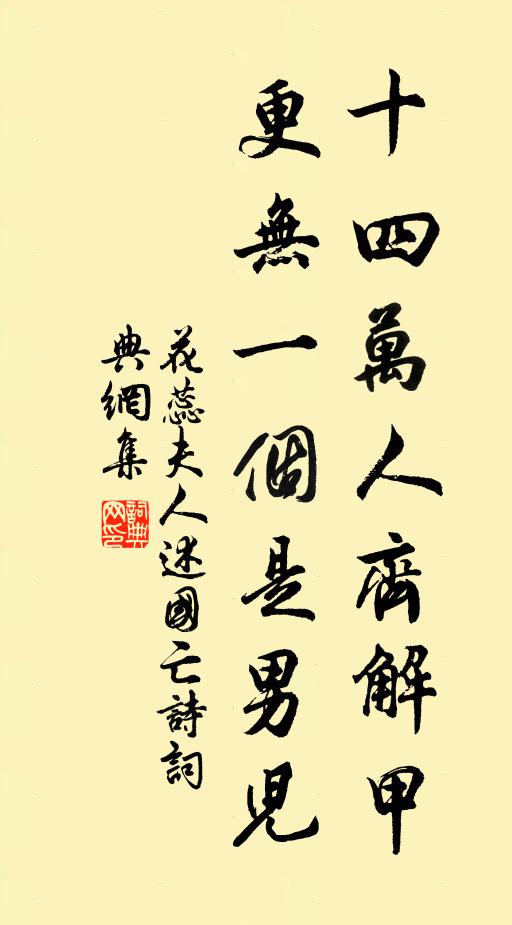 十四萬人齊解甲
更無一個是男兒
花蕊夫人述國亡詩詞
典網集
詞典網印